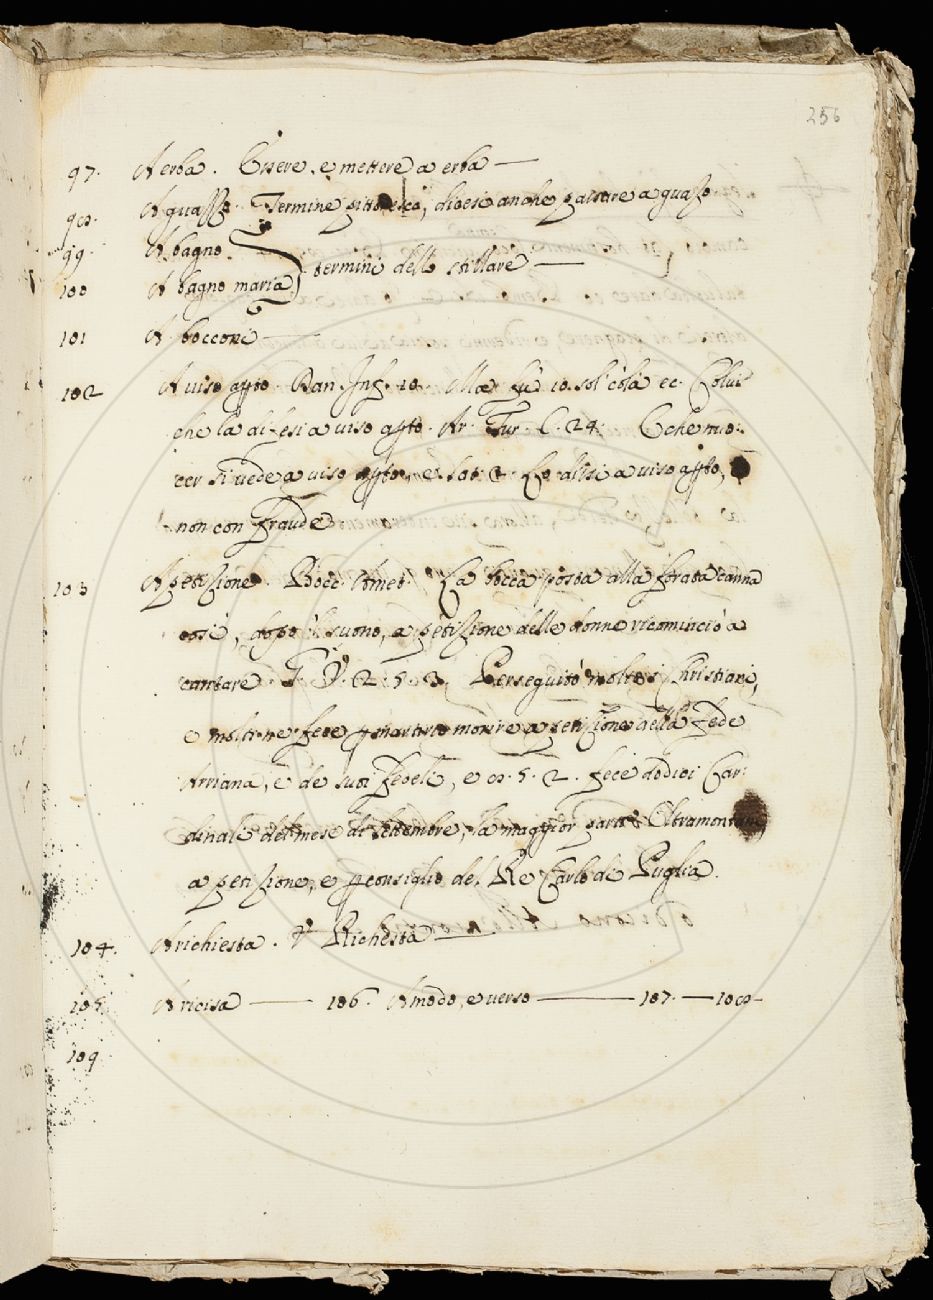 256
97. A erba. Essere, e mettere a erba —
98. A guazzo. Termine pittoresco, dicesi anche passare a guazo.
99. A bagno
100 A bagno maria } termini dello stillare —
101 A bocconi —
102 A viso apto. Dan. Inf. 10. Ma fù io sol colà ec. Colui
che la difesi a viso apto. Ar. Fur. C. 24. E che mo:
rer si vede a viso apto, e Sat. 2. Lo dissi a viso apto,
non con fraude
103 A petizione. Bocc. Amet. La bocca posta alla forata canna
così, dopo il suono, a petizione delle donne ricominciò a
cantare. G. V. 2. 5. 3. Perseguitò molto i Christiani,
e molti ne fece p martirio morire a petizione della fede
Arriana, e de suoi fedeli, e 8. 5. 2. fece dodici Car:
dinali del mese di settembre, la maggior parte Oltramontani,
a petizione, e p consiglio del Re Carlo di Puglia.
104. A richiesta. V. Richesta —
105. A ricisa — 106. A modo, e verso — 107. — 108 —
109